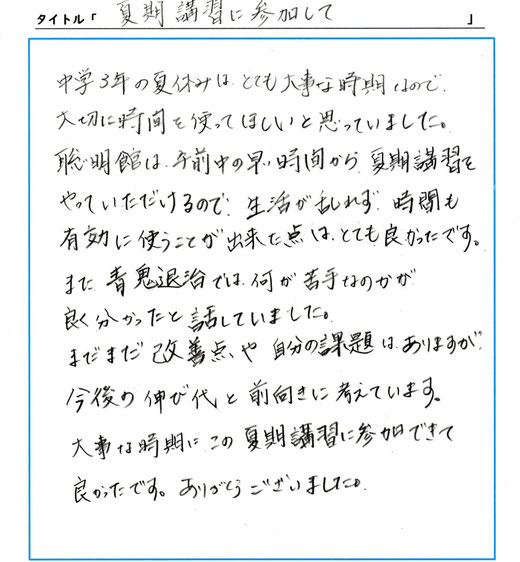 タイトル「夏期講習に参加して」
中学3年の夏休みは、とても大事な時期なので、
大切に時間を使ってほしいと思っていました。
聡明館は、午前中の早い時間から、夏期講習を
やっていただけるので、生活が乱れず、時間も
有効に使うことが出来た点は、とても良かったです。
また、青鬼退治では、何が苦手なのかが
良く分かったと話していました。
まだまだ、改善点や自分の課題は、ありますが、
今後の伸び代と前向きに考えています。
大事な時期に、この夏期講習に参加できて
良かったです。ありがとうございました。